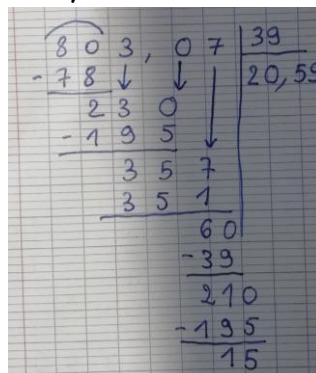 803,07 | 39
- 78 20,59
230
- 195
357
351
60
- 39
210
- 195
15